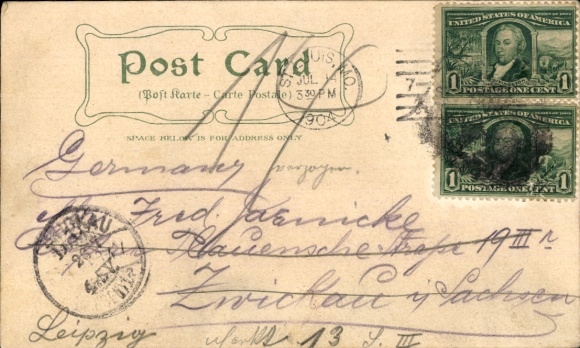 Post Card
(Post Karte – Carte Postale)
SPACE BELOW IS FOR ADDRESS ONLY
ST. LOUIS, MO.
JUL
3 30 PM
1904
7
UNITED STATES OF AMERICA
1 1
POSTAGE ONE CENT
UNITED STATES OF AMERICA
1 1
POSTAGE ONE CENT
Germany verzogen.
Fred. Jaenicke
Plauenschestraße 19 III r
Zwickau i/Sachsen
Leipzig Markt 13 III